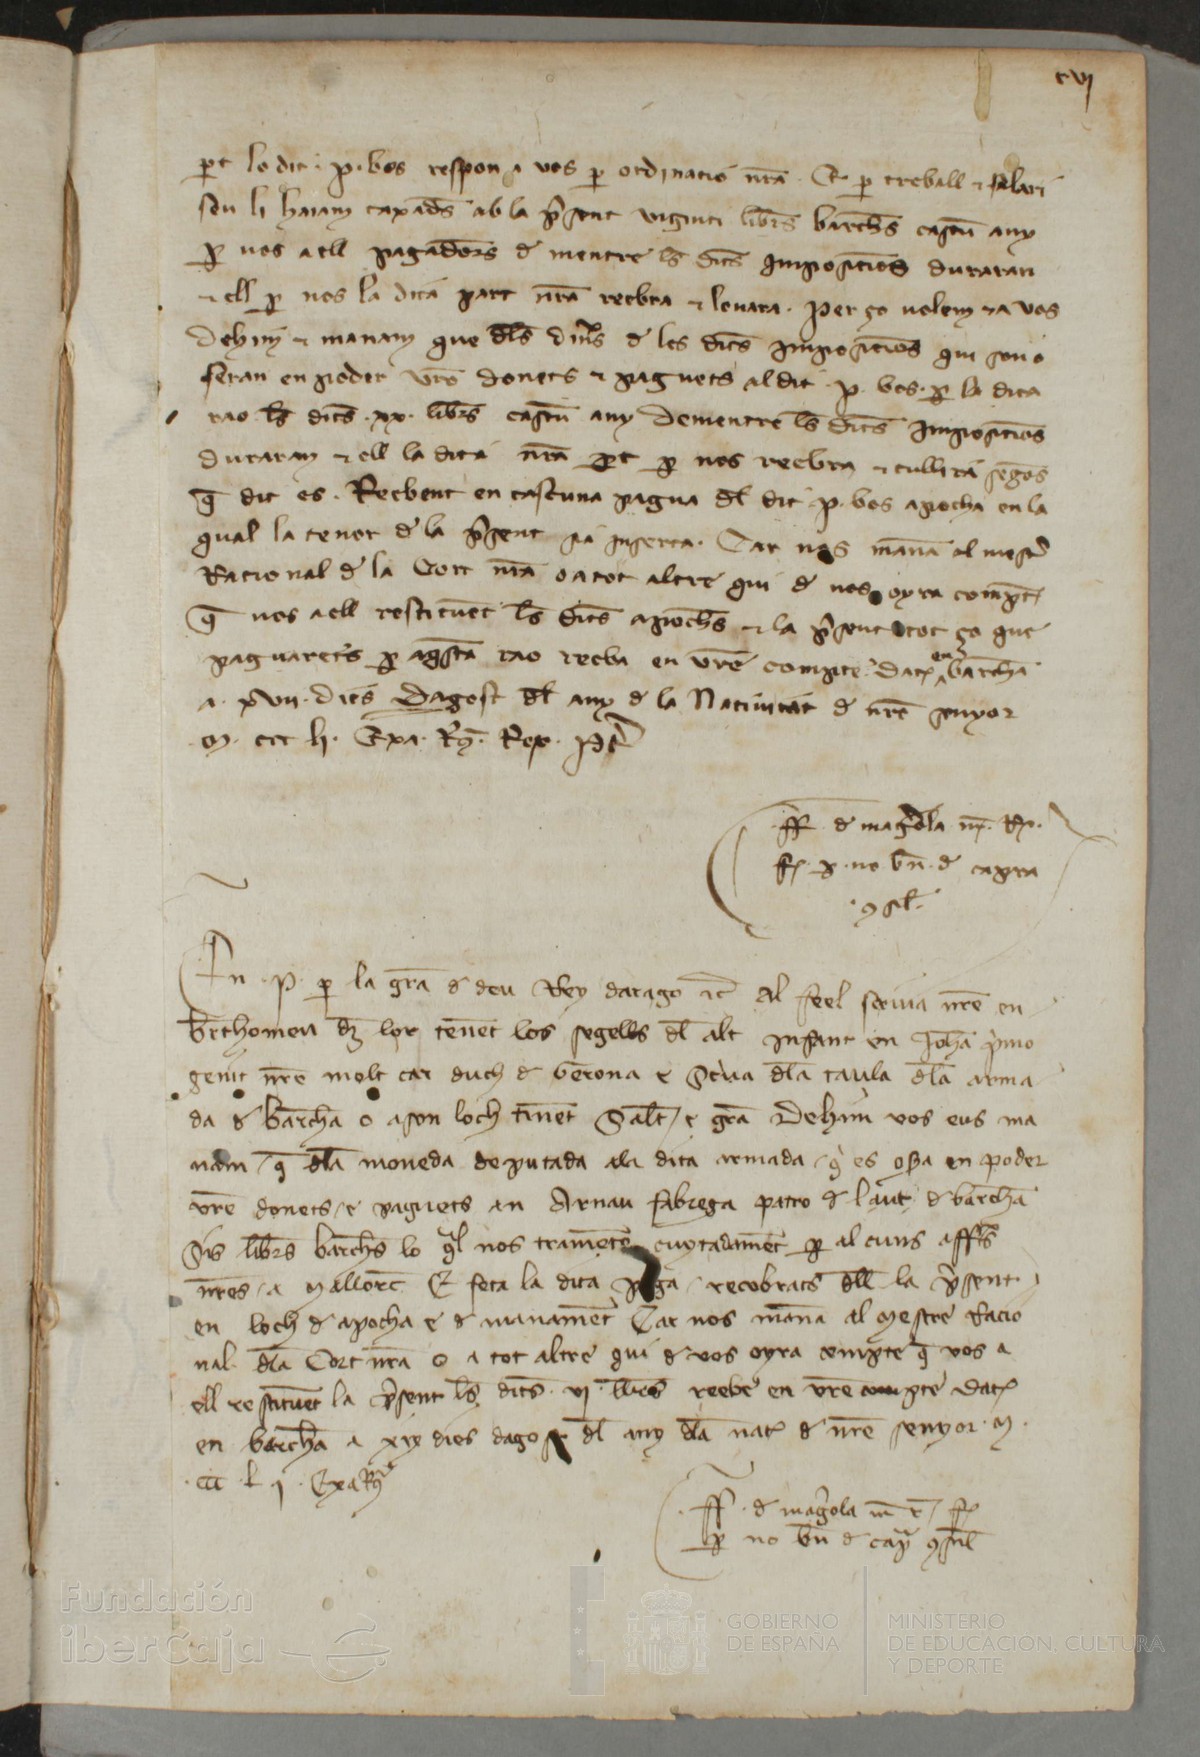 cvj
p̱t lo dit · p · bos respon a vos p̱ ordinatio nr̄a · Et p̱ treball & salari
seu li haiam taxad̄s ab la p̄sent viginti libr̄s barch̄s cascū any
p̱ nos a ell pagadōrs de mentre l̄s dit̄s imposicions duraran
& ell p̱ nos la dita part nr̄a reebra & leuara · Per ço uolem & a vos
dehim & manam que dl̄s din̄s de les dit̄s imposicions qui son o
seran en poder vr̄e donets & paguets al dit · p · bos · p̱ la dita
rao l̄s dit̄s · xx · libr̄s cascū any dementre l̄s dit̄s imposicions
duraram & ell la dita nr̄a p̱t p̱ nos reebra & cullira segōs
q̄ dit es · Reebent en cascuna pagua dl̄ dit · p · bos apocha en la
qual la tenor de la p̄sent sia inserta · Car nos manā al mest̄
Racional de la Cort nr̄a o a tot altre qui de nos oyra compte
q̄ vos a ell restituēt l̄s dit̄s apoch̄s & la p̄sent tot ço que
paguarets p̱ aq̄sta rao reeba en vr̄e compte · Dat̄ en barchā
a · xvii · dies dagost dl̄ any de la Natiuitat de nr̄e senyor
M · ccc lj · Exa · R̄g · Rex · P
ff · de maḡola m̄ · R̄ ·
f̄ · p̱ · no · bn̄ · de capra
· 9sil̄ ·
En · P · p̱ la gr̄a de deu Rey darago &c̄ Al feel scriua nr̄e en
br̄thomeu dz lor tenēt los segells dl̄ alt infant en Johā p̄mo
genit nr̄e molt car duch de Gerona e Sc̄ua dl̄a taula dl̄a arma
da de barchā o a son loch tinēt Salt̄ / e gr̄a Dehim vos eus ma
nam / q̄ dl̄a moneda deputada a la dita armada / q̄ es o ßa en poder
vr̄e donets / e paguets an Arnau fabrega patro de laut de barchā
Sis libr̄s barch̄s lo q̄l nos trametē cuytadamēt p̱ alcuns affr̄s
nr̄es / a Mallorc̄ E feta la dita paga / recobrats dl̄l la p̄sent
en loch de apocha e de manamēt Car nos manā al Mestre Racio
nal dl̄a Cort nr̄a o a tot altre qui de vos oyra compte q̄ vos a
ell restituēt la p̄sent l̄s dit̄s · vj · libr̄s reebe en vr̄e compte Dat̄
en barchā a xix dies dagost dl̄ any dl̄a nat̄ de nr̄e senyor · M ·
· ccc · L · j · Exa R̄g
· ff · de maḡola m̄ r̄ / f̄
p̱ no bn̄ de cap̄ 9sil̄
Fundación
iberCaja
GOBIERNO
DE ESPAÑA
MINISTERIO
DE EDUCACIÓN, CULTURA
Y DEPORTE